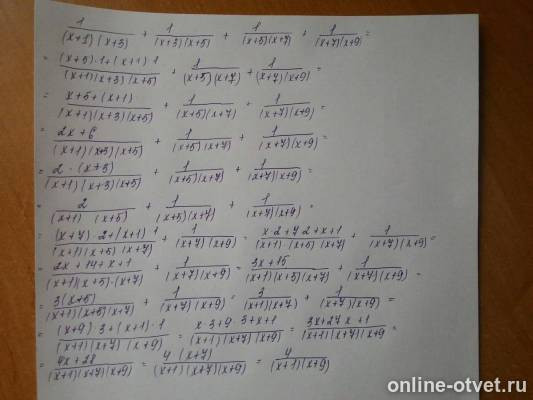 1/(x+1)(x+3) + 1/(x+3)(x+5) + 1/(x+5)(x+7) + 1/(x+7)(x+9) =
= (x+5)·1+(x+1)·1/(x+1)(x+3)(x+5) + 1/(x+5)(x+7) + 1/(x+7)(x+9) =
= x+5+(x+1)/(x+1)(x+3)(x+5) + 1/(x+5)(x+7) + 1/(x+7)(x+9) =
= 2x+6/(x+1)(x+3)(x+5) + 1/(x+5)(x+7) + 1/(x+7)(x+9) =
= 2·(x+3)/(x+1)(x+3)(x+5) + 1/(x+5)(x+7) + 1/(x+7)(x+9) =
= 2/(x+1)(x+5) + 1/(x+5)(x+7) + 1/(x+7)(x+9) =
= (x+7)·2+(x+1)·1/(x+1)(x+5)(x+7) + 1/(x+7)(x+9) = x·2+7·2+x+1/(x+1)(x+5)(x+7) + 1/(x+7)(x+9) =
= 2x+14+x+1/(x+1)(x+5)·(x+7) + 1/(x+7)(x+9) = 3x+15/(x+1)(x+5)(x+7) + 1/(x+7)(x+9) =
= 3(x+5)/(x+1)(x+5)(x+7) + 1/(x+7)(x+9) = 3/(x+1)(x+7) + 1/(x+7)(x+9) =
= (x+9)·3+(x+1)·1/(x+1)(x+7)(x+9) = x·3+9·3+x+1/(x+1)(x+7)(x+9) = 3x+27x+1/(x+1)(x+7)(x+9) =
= 4x+28/(x+1)(x+7)(x+9) = 4(x+7)/(x+1)(x+7)(x+9) = 4/(x+1)(x+9)
online-otvet.ru